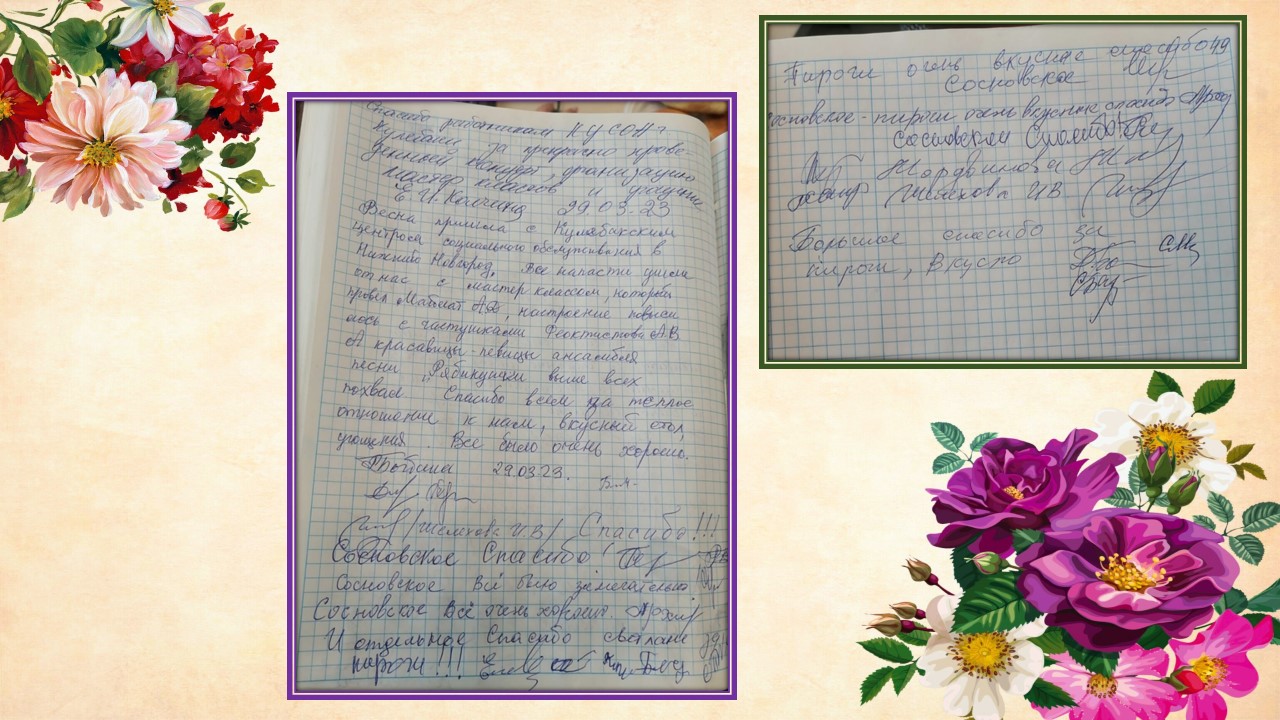 Спасибо работникам КЦСОН г
Кулебаки за прекрасно прове-
денный концерт, организацию
мастер классов и угощение
29.03.23
Весна пришла с Кулебакским
центром социального обслуживания в
Нижний Новгород. Все напасти ушли
от нас с мастер классом, который
провел А.В, настроение повыси
лось с частушками Феоктистова А.В
А красавицы-певицы ансамбля
песни „Рябинушки выше всех
похвал Спасибо всем за теплое
отношение к нам, вкусный стол,
угощения. Все было очень хорошо.
29.03.23.
/Шелехова И.В/ Спасибо!!!
Сосновское Спасибо!
Сосновское Всё было замечательно
Сосновское Всё очень хорошо.
И отдельное Спасибо Светлане
пироги!!!
Пироги очень вкусные спасибо
Сосновское
Сосновское - пироги очень вкусные спасибо
Сосновское Спасибо
Шелехова ИВ
Большое спасибо за
пироги, Вкусно